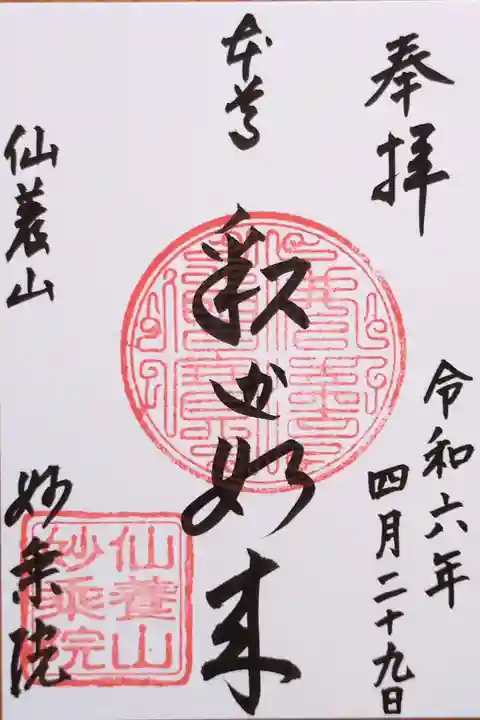 奉拝
令和六年
四月二十九日
本尊
釈迦如来
仙養山
妙乗院
仙養山
妙乘院